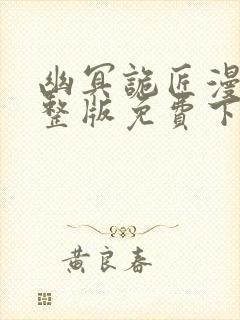 幽冥詭匠漫
整版免費下
黃良春